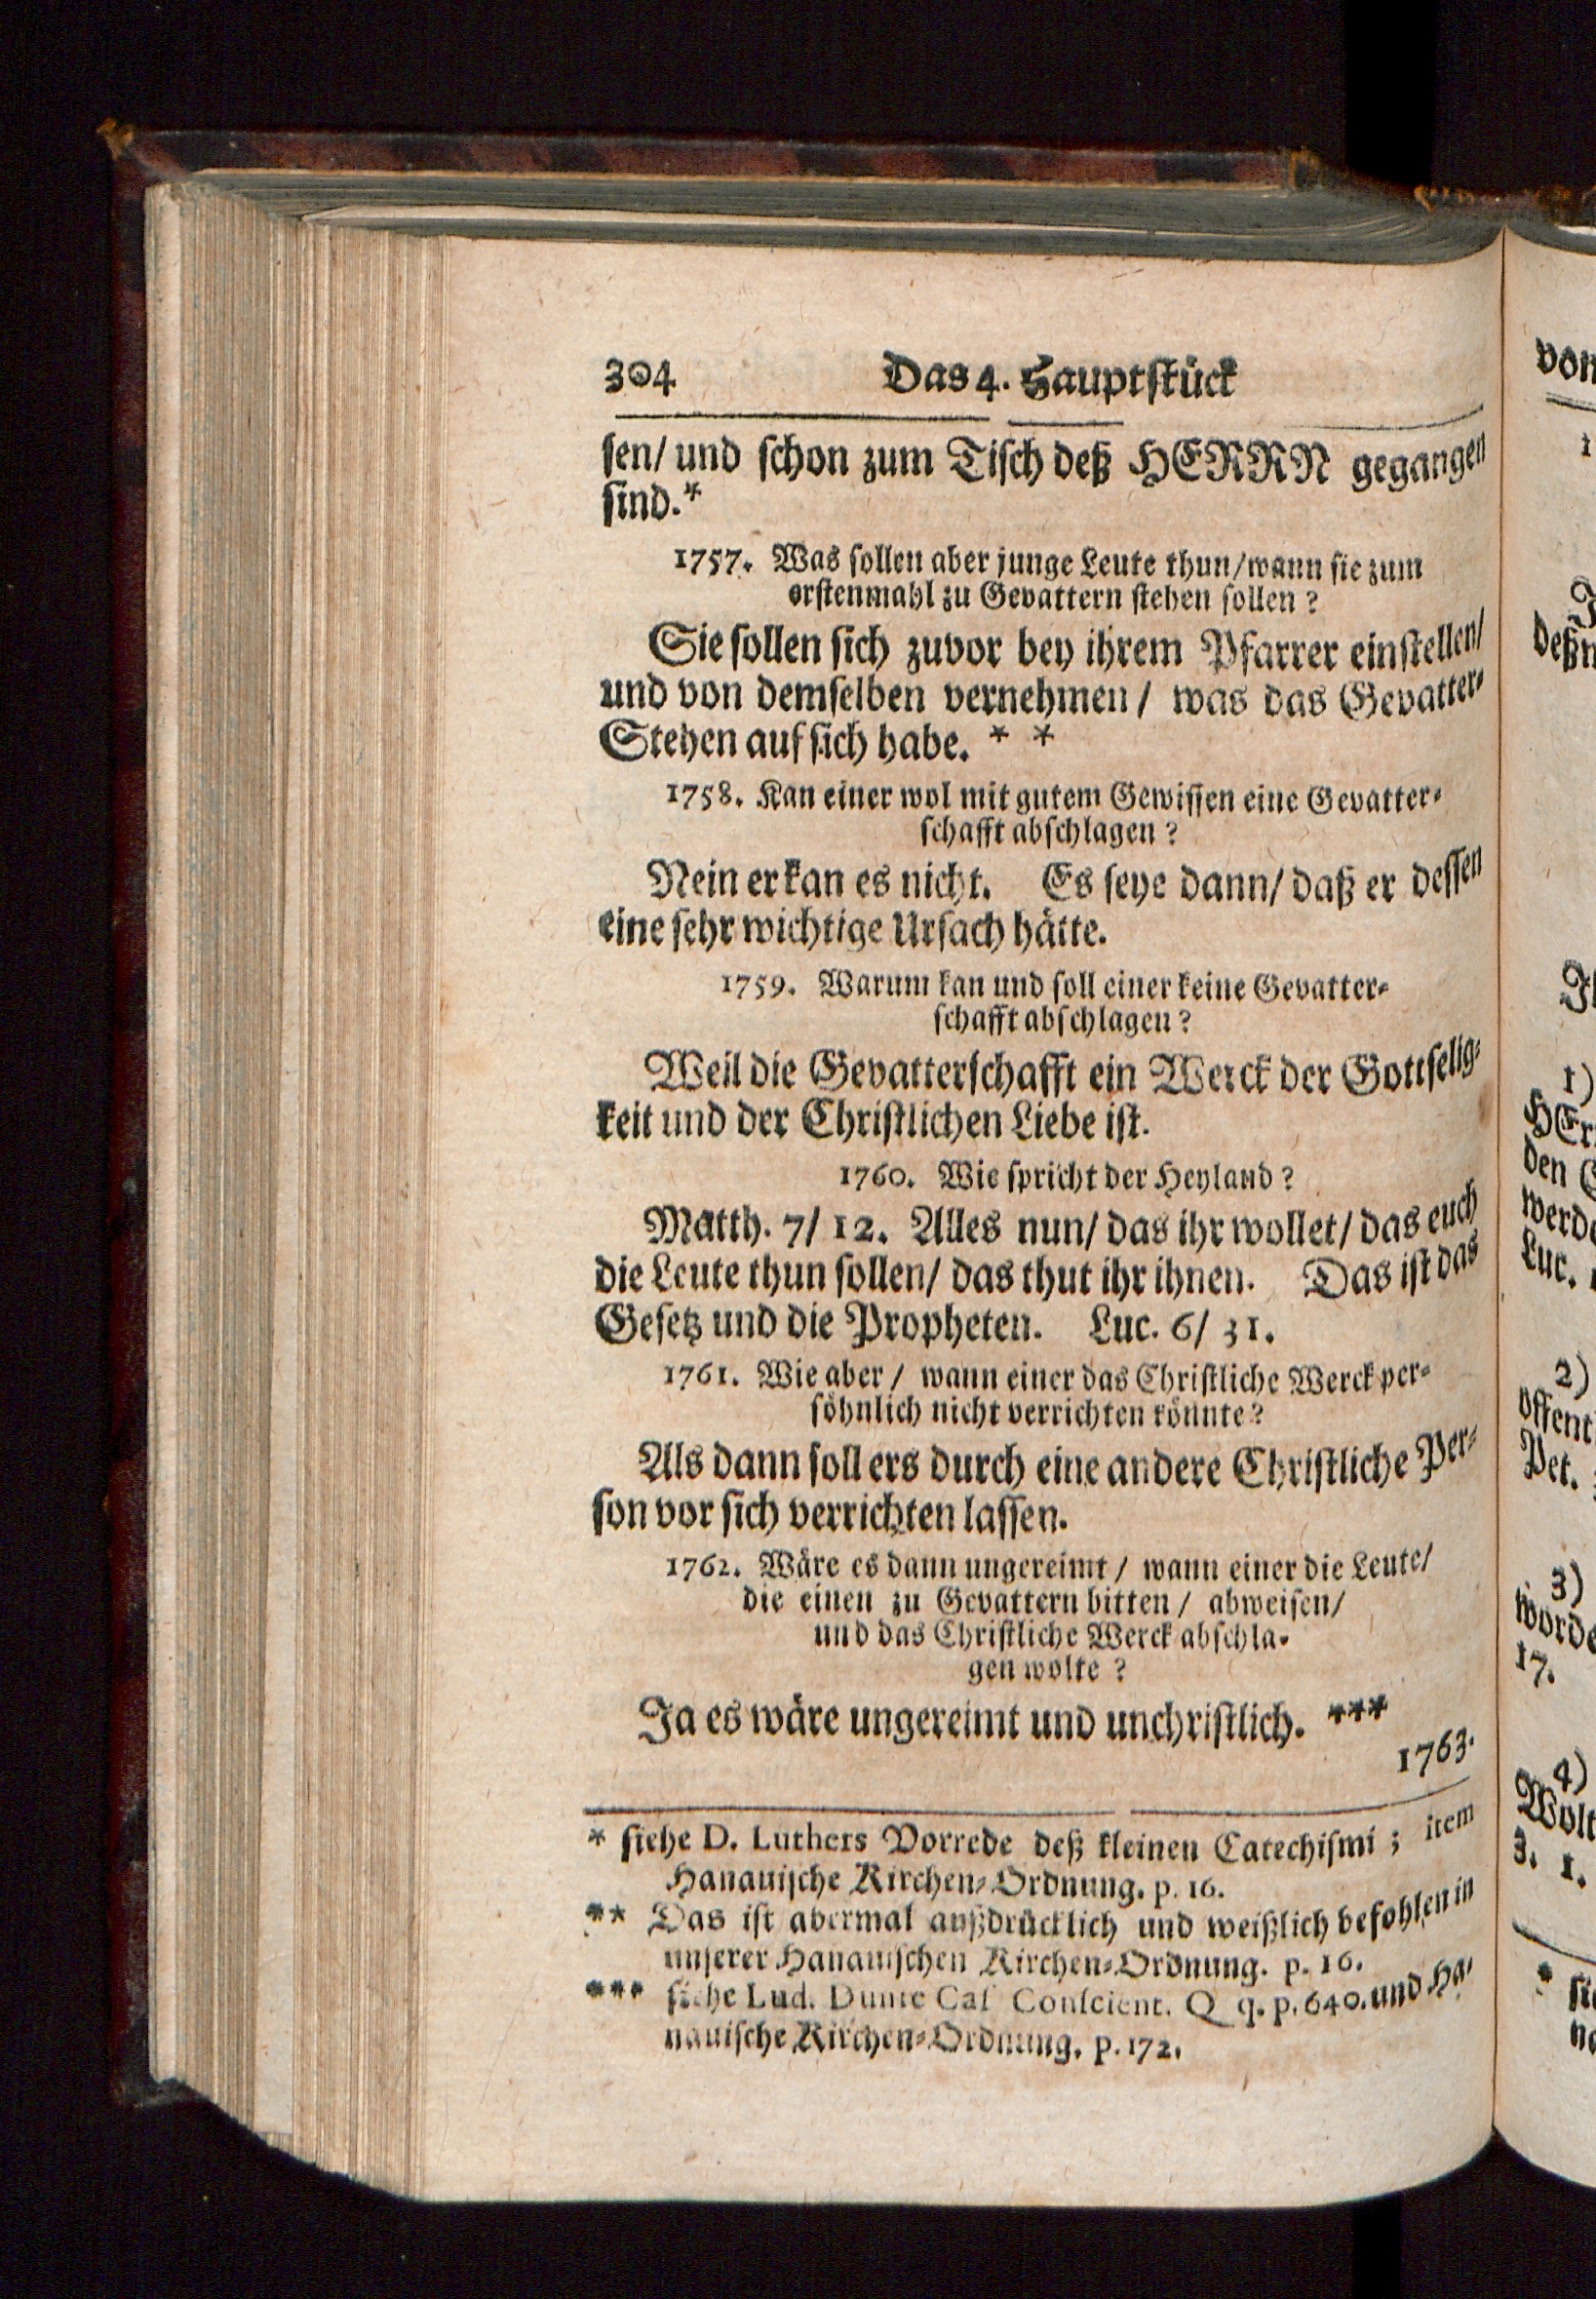 304 Das 4. Hauptstück
sen/ und schon zum Tisch deß HERRN gegangen
sind.*
1757. Was sollen aber junge Leute thun/wann sie zum
erstenmahl zu Gevattern stehen sollen?
Sie sollen sich zuvor bey ihrem Pfarrer einstellen/
und von demselben vernehmen/ was das Gevatter-
Stehen auf sich habe. * *
1758. Kan einer wol mit gutem Gewissen eine Gevatter-
schafft abschlagen?
Nein er kan es nicht. Es seye dann/ daß er dessen
eine sehr wichtige Ursach hätte.
1759. Warum kan und soll einer keine Gevatter-
schafft abschlagen?
Weil die Gevatterschafft ein Werck der Gottselig-
keit und der Christlichen Liebe ist.
1760. Wie spricht der Heyland?
Matth. 7/ 12. Alles nun/ das ihr wollet/ das euch
die Leute thun sollen/ das thut ihr ihnen. Das ist das
Gesetz und die Propheten. Luc. 6/ 31.
1761. Wie aber/ wann einer das Christliche Werck per-
söhnlich nicht verrichten könnte?
Als dann soll ers durch eine andere Christliche Per-
son vor sich verrichten lassen.
1762. Wäre es dann ungereimt/ wann einer die Leute/
die einen zu Gevattern bitten/ abweisen/
und das Christliche Werck abschla-
gen wolte?
Ja es wäre ungereimt und unchristlich. ***
1763.
* siehe D. Luthers Vorrede deß kleinen Catechismi; item
Hanauische Kirchen-Ordnung. p. 16.
** Das ist abermal außdrücklich und weißlich befohlen in
unserer Hanauischen Kirchen-Ordnung. p. 16.
*** siehe Lud. Dunte Cas Conscient. Q q. p. 640. und Ha-
nauische Kirchen-Ordnung. p. 172.
von
deßn
1)
HEr
den
werde
Luc.
2)
öffent
Pet.
3)
worde
17.
4)
Wolt
3. 1.
*